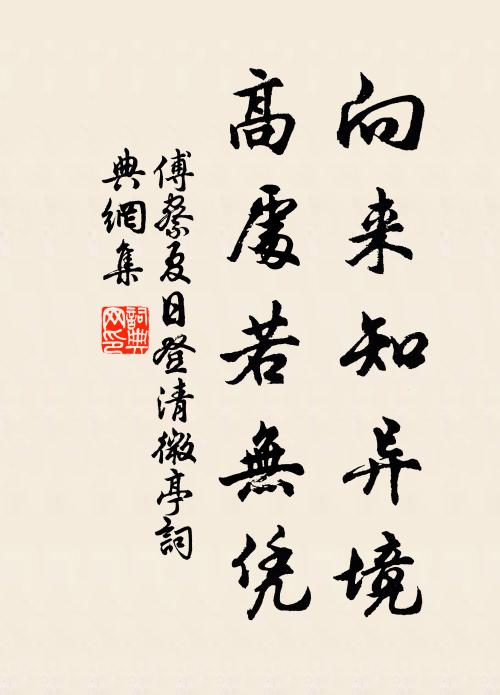 向来知异境
高處若無凭
傅察夏日登清微亭詞
典網集
詞典
网印